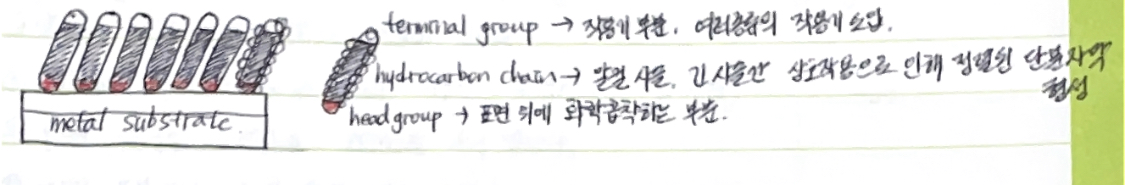 terminal group → 작용기 부분. 여러종류의 작용기 도입.
hydrocarbon chain → 알킬 사슬. 긴 사슬간 상호작용으로 인해 정렬된 단분자막
형성
head group → 표면 위에 화학흡착하는 부분.
metal substrate.